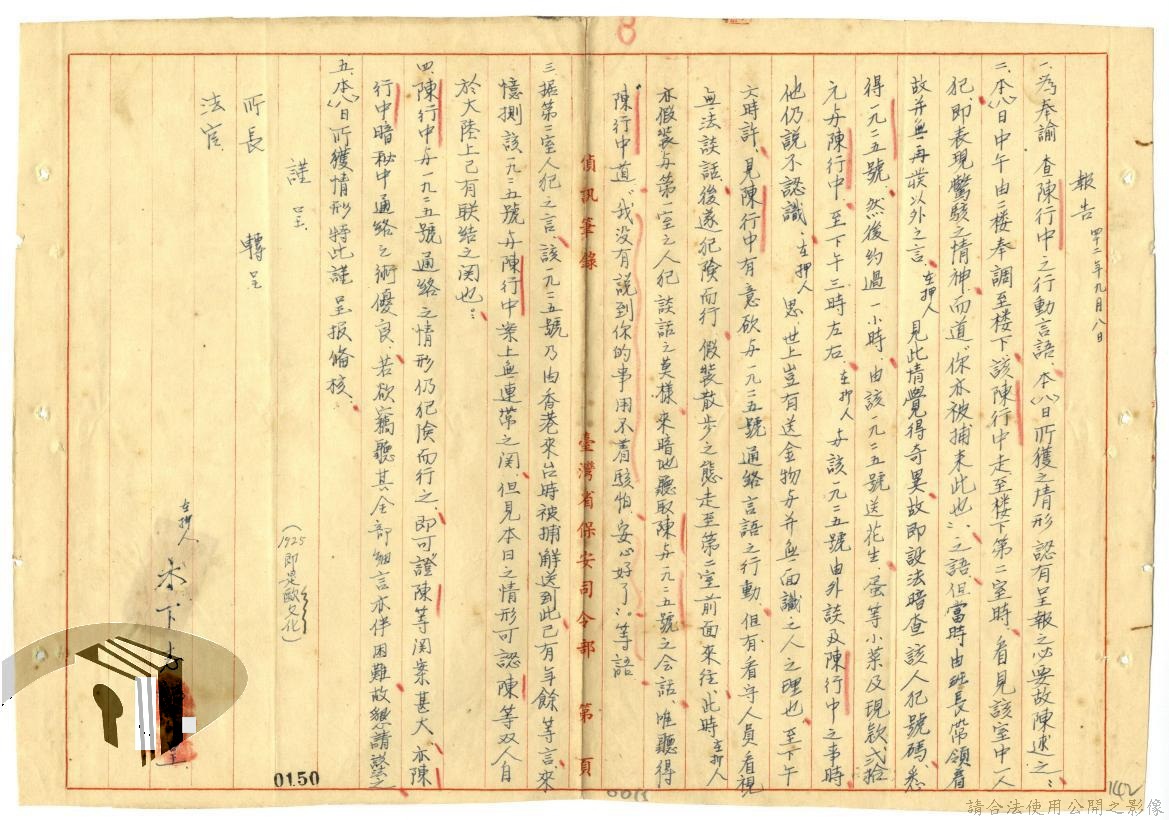 報告 四十二年九月八日
一、为奉諭 查陳行中之行動言語、本(八)日所獲之情形 認有呈報之必要故陳述之：
二、本(八)日中午由二楼奉調至楼下、該陳行中走至楼下第二室時、看見該室中一人
犯、即表現驚駭之情神、而道“你亦被捕来此也”之語、但當時由班長常領着
故并無再談以外之言、在押人見此情覺得奇異故即設法暗查該人犯號碼、悉
得一九二五號、然後約過一小時、由該一九二五號送花生、蛋等小菜及現款弍拾
元与陳行中、至下午三時左右、在押人与該一九二五號由外談及陳行中之事時
他仍說不認識、在押人思、世上豈有送金物与并無面識之人之理也、至下午
六時許、見陳行中有意欲与一九二五號通絡言語之行動、但有看守人員看視
無法談話、後遂犯険而行、假裝散步之態走至第二室前面來往、此時在押人
亦假裝与第一室之人犯談話之莫樣、來暗地聽取陳与一九二五號之会話、唯聽得
陳行中道“我没有説到你的事用不着駭怕、安心好了”等語
三、据第二室人犯之言、該一九二五號乃由香港來台時被捕解送到此已有年餘等言、來
憶測該一九二五號与陳行中案上無連常之関、但見本日之情形可認陳等双人自
於大陸上已有联结之関也：
四、陳行中与一九二五號通絡之情形仍犯険而行之、即可證陳等関案甚大、亦陳
行中暗秘中通絡之術優良、若欲竊聽其全部细言亦伴困難故懇請設法之
五、本(八)日所獲情形特此謹呈报俻核、
謹呈
所長 轉呈
法官
在押人
(1925即是歐文化)
偵訊筆錄 臺灣省保安司令部 第 頁
8
0150
142
請合法使用公開之影像